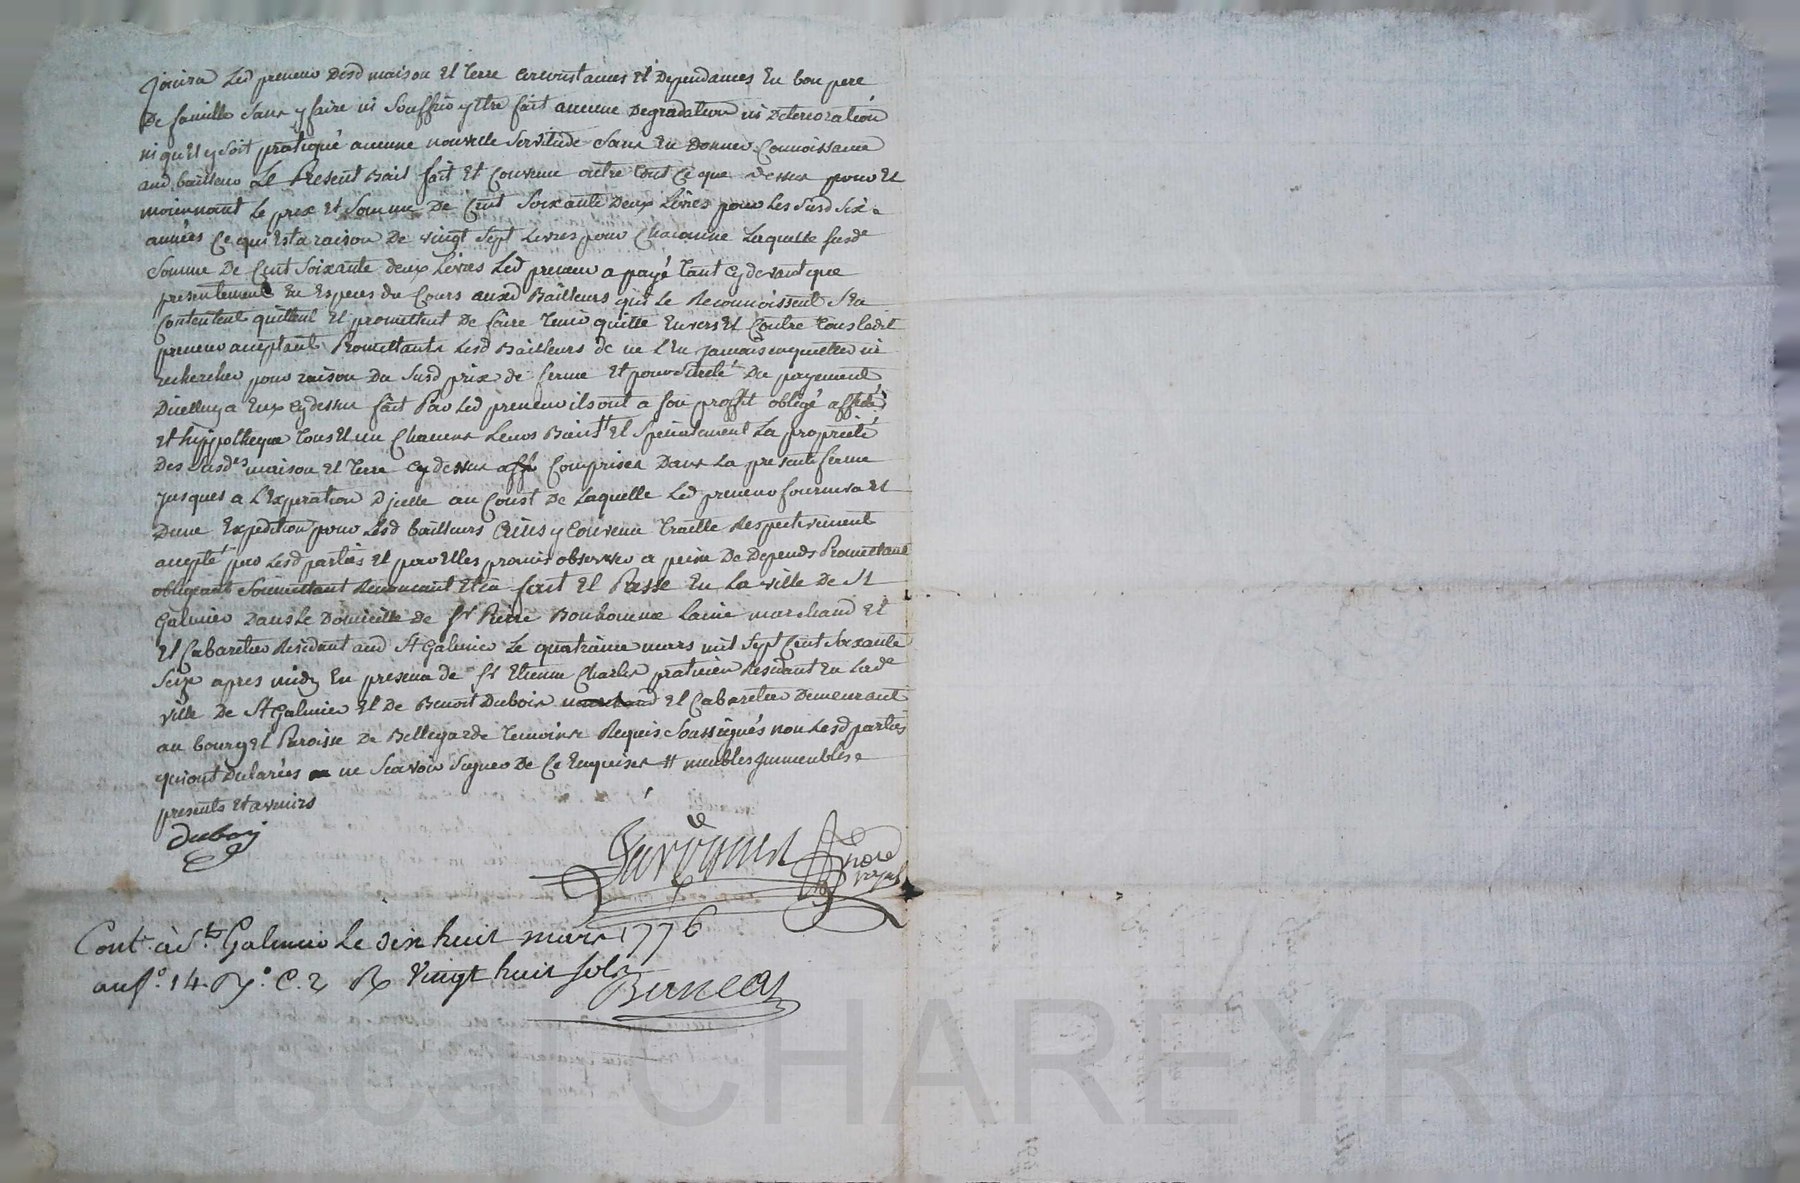 Jouira Led preneur Desd maison Et Terre Circonstances Et Dependances En bon pere
De famille Sans y faire ni Souffrir y Etre fait aucune Degradation ni Deterioration
ni quil y Soit pratiqué aucune nouvelle Servitude Sans En Donner Connoissance
aud bailleur Le Present Bail fait Et Convenu outre tout Ce que dessus pour Et
moiennant Le prix Et Somme De Cent Soixante Deux Livres pour Les Susd Six
années Ce qui Est a raison De vingt Sept Livres pour Chacunne Laquelle susde
Somme De Cent Soixante deux Livres Led preneur a payé tant Cydevant que
presentement En Especes du Cours auxd Bailleurs qui Le Reconnoissent S'En
Contentent quittent Et promettent De faire tenir quitte Envers Et Contre tous Ledit
preneur acceptant Promettants Lesd Bailleurs de ne L'En jamais inquieter ni
rechercher pour raison Du Susd prix de ferme Et pour Sureté Du payement
Dicelluy a Eux Cydessus fait Par Led preneur ils ont a son proffit obligé affecté
Et hippotheque tous Et un Chacuns Leurs Biens # Et Specialement La propriété
Des Susdes maison Et Terre Cy dessus aff Comprises Dans La presente ferme
jusques a L'Expiration D'jcelle au Coust De Laquelle Led preneur fournira Et
Dune Expedition pour Lesd bailleurs Ainsy Convenu traitte Respectivement
accepté par Lesd parties Et par Elles promis observer a peine De Depends Promettant
obligeant Soumettant Renoncant Et ca fait Et Passé En La ville De St
Galmier Dans Le Domicille de Sr Pierre Bonhomme Laine marchand Et
Et Cabaretier Residant aud St Galmier Le quatrieme mars mil Sept Cent Soixante
Seize apres midy En presence de Sr Etienne Charles praticien Residant En Lade
ville De St Galmier Et de Benoit Dubois marchand Et Cabaretier Demeurant
au bourg Et Paroisse De Bellegarde temoins Requis Soussignés non Lesd parties
qui ont Declarées ne Scavoir Signer De Ce Enquises # meubles Jmmeubles
presents Et avenirs
dubois
Cont. à St. Galmier Le dix huit mars 1776
au fo. 14. Vo. C. 2 R Vingt huit sols
ascal CHAREYRON